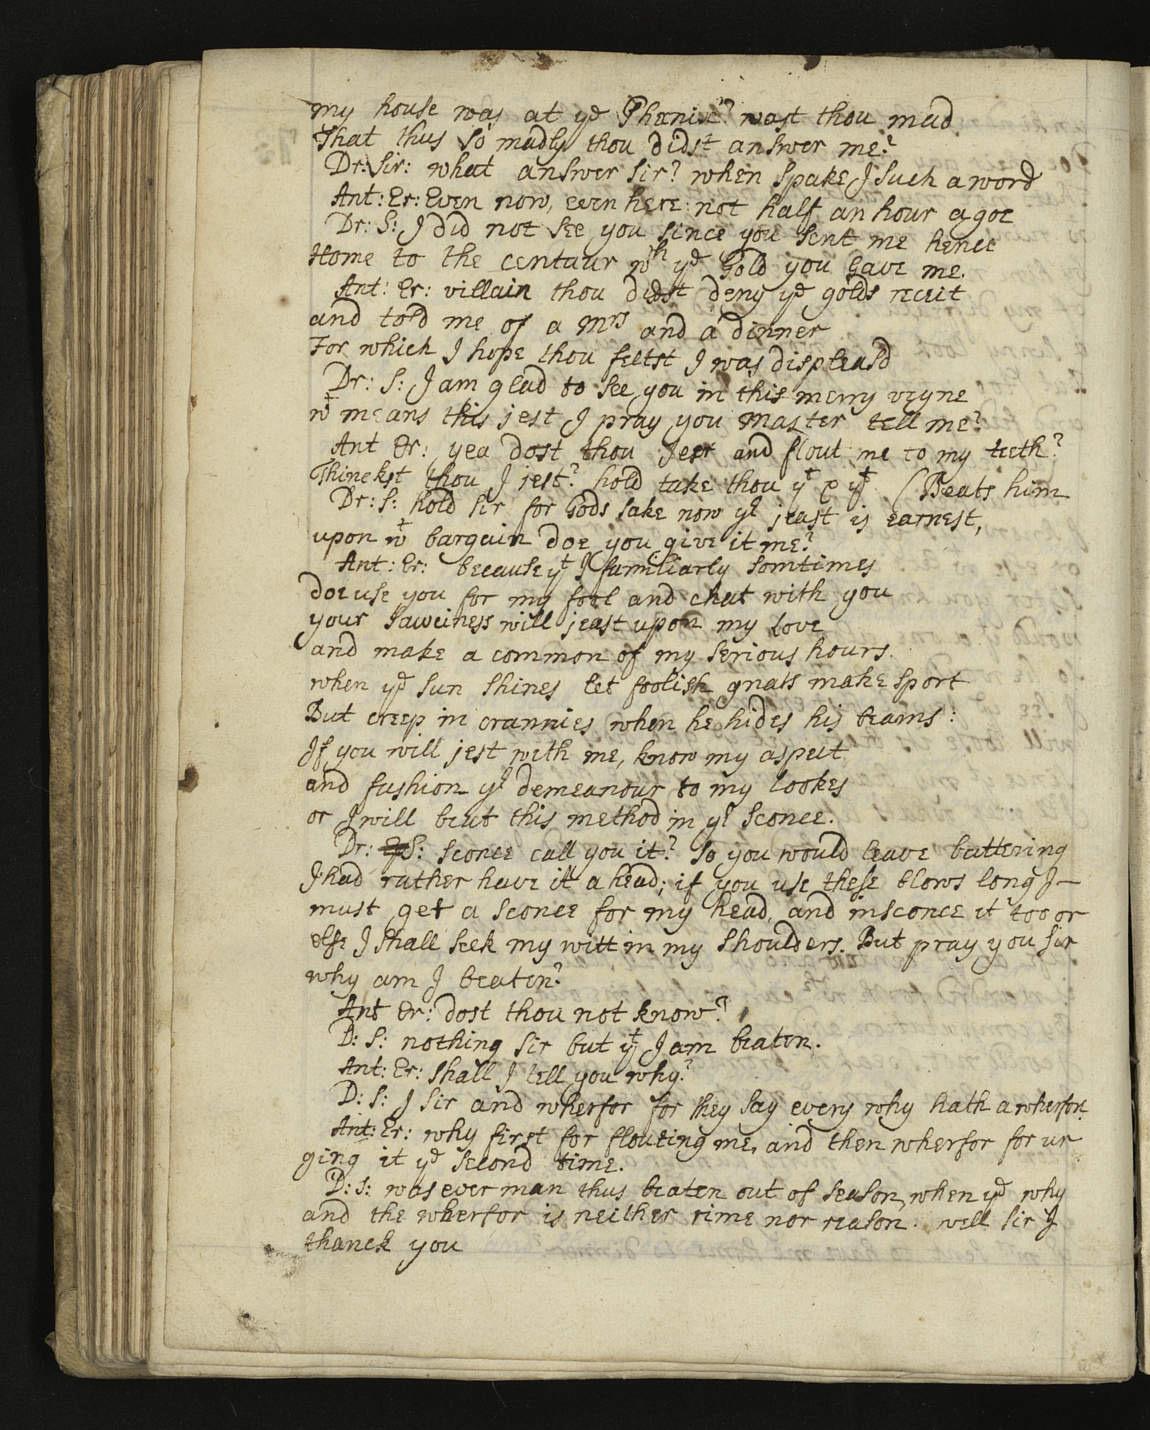 my house was at ye Phœnix? wast thou mad
That thus so madly thou didst answer me?
Dr: Sir: what answer sir? when spake J such a word
Ant: Er: Even now, even here not half an hour agoe
Dr: S: J did not see you since you sent me hence
Home to the centaur wth ye Gold you Gave me.
Ant: Er: villain thou didst deny ye golds receit
and told me of a Mrs and a dinner
For which J hope thou feltst J was displeasd
Dr: S: J am glad to see you in this merry veyne
wt means this jest J pray you Master tell me?
Ant Er: yea dost thou jeer and flout me to my teeth?
Thinckst thou J jest? hold take thou yt & yt. (Beats him
Dr: S: hold sir for Gods sake now yr jeast is earnest,
upon wt bargain doe you give it me?
Ant: Er: because yt J familiarly somtimes
doe use you for my fool and chat with you
your sawciness will jeast upon my love
and make a common of my serious hours.
when ye sun shines let foolish gnats make sport
But creep in crannies when he hides his beams:
Jf you will jest with me, know my aspect
and fashion yr demeanour to my lookes
or J will beat this method in yr sconce.
Dr: S: sconce call you it? so you would leave battering
J had rather have it a head; if you use these blows long J—
must get a sconce for my head, and insconce it too or
else J shall seek my witt in my shoulders. But pray you sir
why am J beaten?
Ant Er: dost thou not know?
D: S: nothing sir but yt J am beaten.
Ant: Er: shall J tell you why?
D: S: J sir and wherfor for they say every why hath a wherfor.
Ant: Er: why first for flouting me, and then wherfor for ur
ging it ye second time.
D: S: was ever man thus beaten out of season, when ye why
and the wherfor is neither rime nor reason. well sir J
thanck you